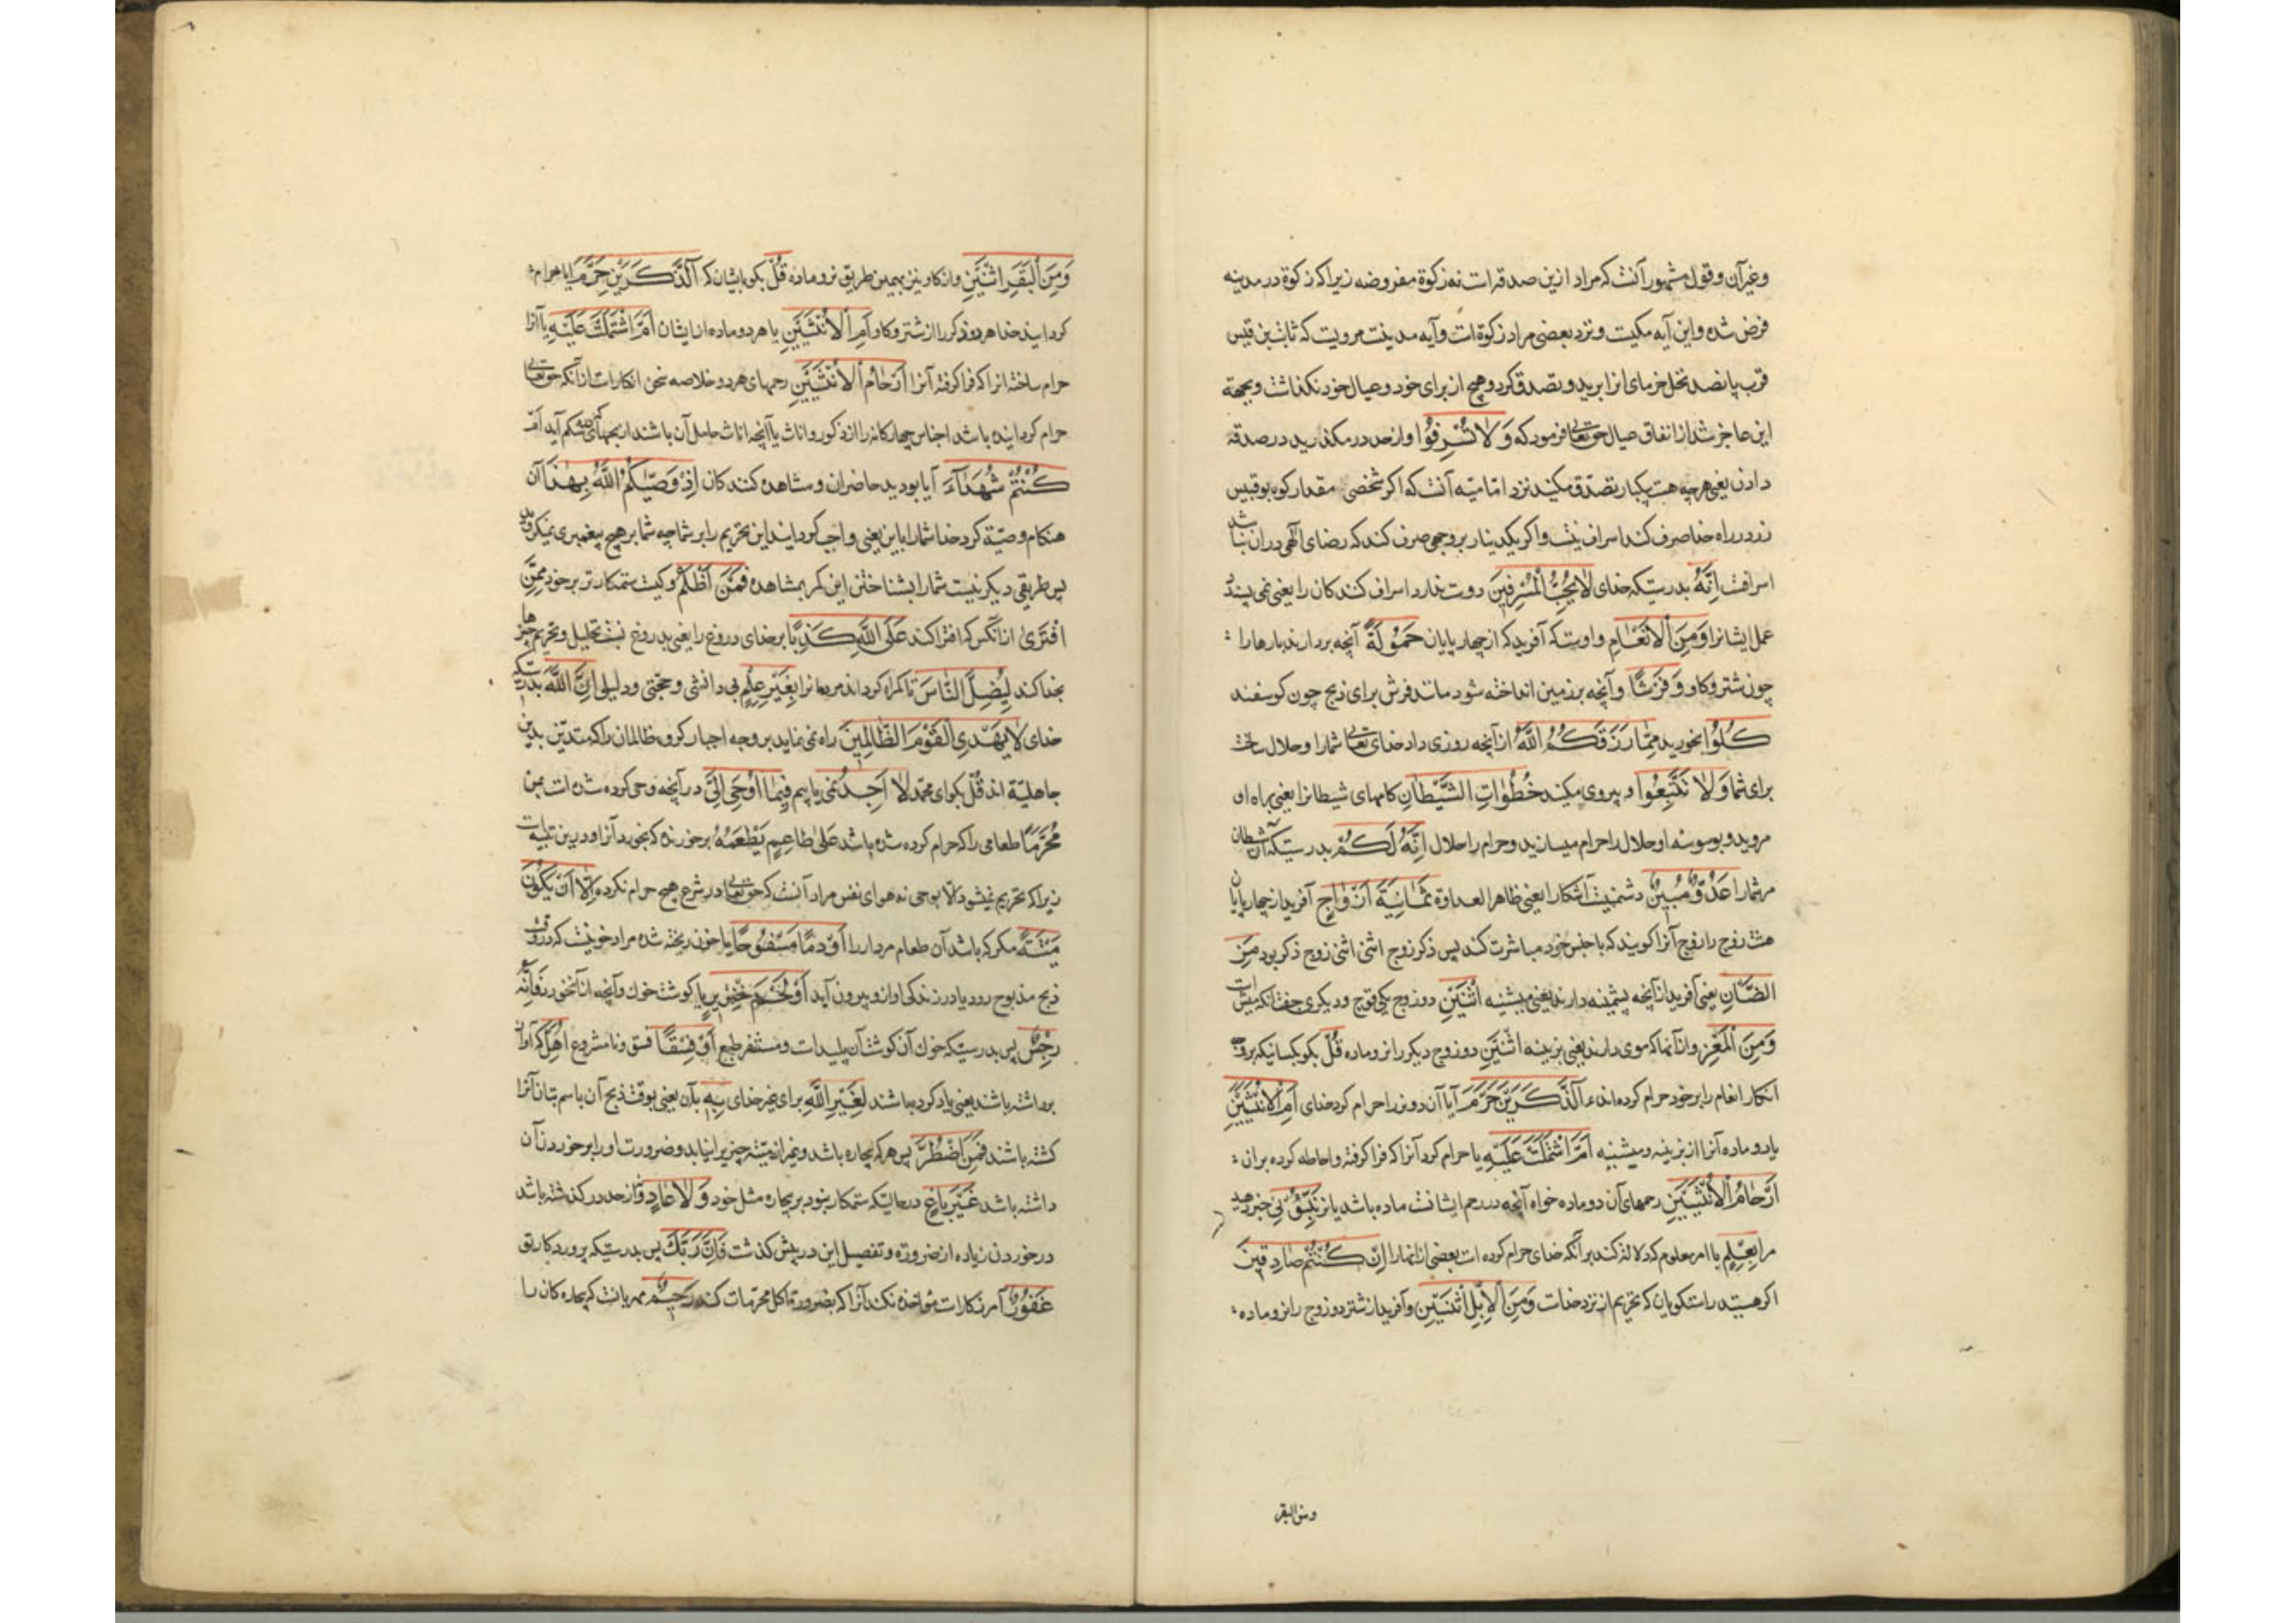 وغیرآن و قول مشهور آنست که مراد ازین صدقه است نه زکوة مفروضه زیرا که زکوة در مدینه
فرض شده و این آیه مکیست و نزد بعضی مراد زکوة است و آیه مدینست مرویست که ثابت بن قیس
قرب پانصد نخل خرمای انرا برید و تصدق کرد و هیچ از برای خود و عیال خود نگذاشت و بجهة
این عاجز شد از انفاق عیال حق تعالی فرمود که وَلَا تُسْرِفُوا و از حد در مگذرید در صدقه
دادن یعنی هرچه هست یکبار تصدق مکنید نزد امامیه آنست که اگر شخصی مقدار کوه بوقبیس
زر در راه خدا صرف کند اسراف نیست و اگر یکدینار بر وجهی صرف کند که رضای الهی دران نباشد
اسرافست اِنَّهُ بدرستیکه خدای لَا یُحِبُّ الْمُسْرِفِینَ دوست ندارد اسراف کنندکان را یعنی نمی پسندد
عمل ایشانرا وَمِنَ الْاَنْعَامِ و اوست که آفرید که از چهارپایان حَمُولَةً آنچه بردارند بارها را
چون شتر و کاو وَفَرْشًا و آنچه برزمین انداخته شود مانند فرش برای ذبح چون کوسفند
کُلُوا بخورید مِمَّا رَزَقَکُمُ اللّٰهُ از آنچه روزی داد خدای تعالی شما را و حلال ساخت
برای شما وَلَا تَتَّبِعُوا و پیروی مکنید خُطُوَاتِ الشَّیْطَانِ کامهای شیطانرا یعنی براه او
مروید و بوسوسه او حلال را حرام مسازید و حرام را حلال اِنَّهُ لَکُمْ بدرستیکه آن شیطان
مر شما را عَدُوٌّ مُبِینٌ دشمنیست آشکارا یعنی ظاهر العداوة ثَمَانِیَةَ اَزْوَاجٍ آفرید از چهارپایان
هشت زوج را زوج آنرا کویند که با جنس خود مباشرت کند پس ذکر زوج انثی انثی زوج ذکر بود مِنَ
الضَّأْنِ یعنی آفرید از آنچه پشمینه دارند یعنی میشینه اثْنَیْنِ دو زوج یکی قوچ و دیکری جفت انکه میش است
وَمِنَ الْمَعْزِ و از آنها که موی دارند یعنی بزینه اثْنَیْنِ دو زوج دیکر را نر و ماده قُلْ بکو بکسانیکه بروجه
انکار انعام را برخود حرام کرده اند ءآلذَّکَرَیْنِ حَرَّمَ آیا آن دو نر را حرام کرد خدای اَمِ الْاُنْثَیَیْنِ
یا دو ماده آنرا از بزینه و میشینه اَمَّا اشْتَمَلَتْ عَلَیْهِ یا حرام کرد آنرا که فرا کرفته و احاطه کرده بران
اَرْحَامُ الْاُنْثَیَیْنِ رحمهای آن دو ماده خواه آنچه در رحم ایشانست ماده باشد یا نر نَبِّئُونِی خبر دهید
مرا بِعِلْمٍ با امر معلوم که دلالة کند بر آنکه خدای حرام کرده است بعضی از انها را اِنْ کُنْتُمْ صَادِقِینَ
اکر هستید راستکویان که تحریم از نزد خداست وَمِنَ الْاِبِلِ اثْنَیْنِ و آفرید از شتر دو زوج را نر و ماده
ومن البقر
وَمِنَ الْبَقَرِ اثْنَیْنِ و از کاو نیز بهمین طریق نر و ماده قُلْ بکو بایشان که آلذَّکَرَیْنِ حَرَّمَ ایا حرام
کردانید خدا هر دو ذکر را از شتر و کاو اَمِ الْاُنْثَیَیْنِ یا هر دو ماده از ایشان اَمَّا اشْتَمَلَتْ عَلَیْهِ یا آنرا
حرام ساخته انرا که فرا کرفته آنرا اَرْحَامُ الْاُنْثَیَیْنِ رحمهای هر دو خلاصه سخن انکار است از آنکه حق تعالی
حرام کردانیده باشد اجناس چهارکانه را از ذکور و اناث یا آنچه اناث حامل آن باشند شکم آید اَمْ
کُنْتُمْ شُهَدَآءَ آیا بودید حاضران و مشاهده کنندکان اِذْ وَصّٰیکُمُ اللّٰهُ بِهٰذَا آن
هنکام وصیّة کرد خدا شما را باین یعنی واجب کردانید این تحریم را بر شما چه شما بر هیچ پیغمبری نمیکروید
پس طریقی دیکر نیست شما را بشناختن این مکر بمشاهده فَمَنْ اَظْلَمُ و کیست ستمکارتر برخود مِمَّنِ
افْتَرٰی از آنکس که افترا کند عَلَی اللّٰهِ کَذِبًا بر خدای دروغ را یعنی بدروغ نسبت تحلیل و تحریم چیزها
بخدا کند لِیُضِلَّ النَّاسَ تا کمراه کرداند مردمانرا بِغَیْرِ عِلْمٍ بی دانشی و حجتی و دلیلی اِنَّ اللّٰهَ بدرستیکه
خدای لَا یَهْدِی الْقَوْمَ الظَّالِمِینَ راه نمی نماید بر وجه اجبار کروه ظالمان را که متدیّن بدین
جاهلیّة اند قُلْ بکو ای محمد لَا اَجِدُ نمی یابم فِیمَا اُوحِیَ اِلَیَّ در آنچه وحی کرده شده است بمن
مُحَرَّمًا طعامی را که حرام کرده شده باشد عَلٰی طَاعِمٍ یَطْعَمُهُ بر خورنده که بخورد آنرا و درین تنبیه است
زیرا که تحریم نمیشود الّا بوحی نه هوای نفس مراد آنست که حق تعالی در شرع هیچ حرام نکرده اِلَّا اَنْ یَکُونَ
مَیْتَةً مکر که باشد آن طعام مردار را اَوْ دَمًا مَسْفُوحًا یا خون ریخته شده مراد خونیست که در وقت
ذبح مذبوح رود یا در زندکی او ازو بیرون آید اَوْ لَحْمَ خِنْزِیرٍ یا کوشت خوک و آنچه از آن خورند فَاِنَّهُ
رِجْسٌ پس بدرستیکه خوک آن کوشت آن پلید است و متنفر طبع اَوْ فِسْقًا فسق و نامشروع اُهِلَّ که آواز
برداشته باشند یعنی یاد کرده باشند لِغَیْرِ اللّٰهِ برای غیر خدای بِهِ بآن یعنی بوقت ذبح آن باسم بتان آنرا
کشته باشند فَمَنِ اضْطُرَّ پس هر که بیچاره باشد و غیر از میّته چیزیرا نیابد و ضرورت او را بر خوردن آن
داشته باشد غَیْرَ بَاغٍ در حالتیکه ستمکار نبود بر بیچاره مثل خود وَلَا عَادٍ و از حد در کذشته باشد
در خوردن زیاده از ضرورة و تفصیل این در پیش کذشت فَاِنَّ رَبَّکَ پس بدرستیکه پروردکار تو
غَفُورٌ آمرزکار است مؤاخذه نکند آنرا که بضرورة اکل محرّمات کند رَحِیمٌ مهربانست که بیچاره کان را